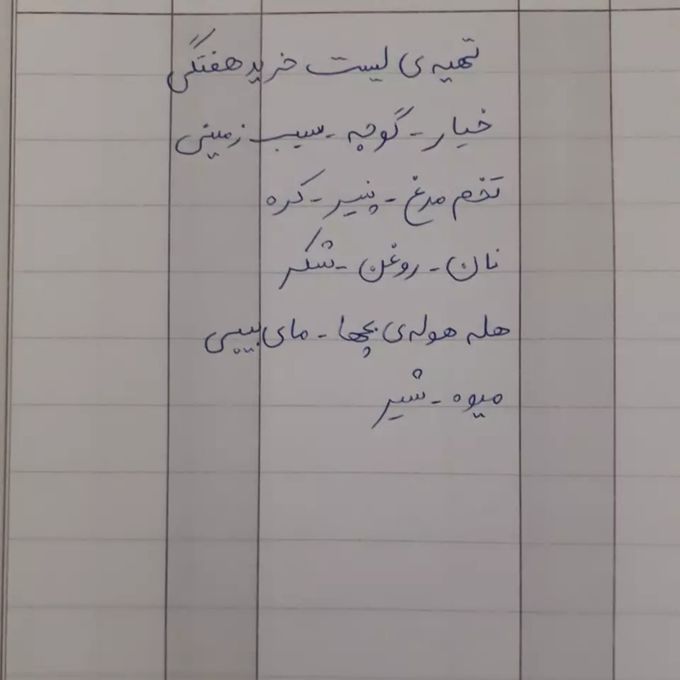 تهیه ی لیست خرید هفتگی
خیار - گوجه - سیب زمینی
تخم مرغ - پنیر - کره
نان - روغن - شکر
هله هوله ی بچها - مای بیبی
میوه - شیر